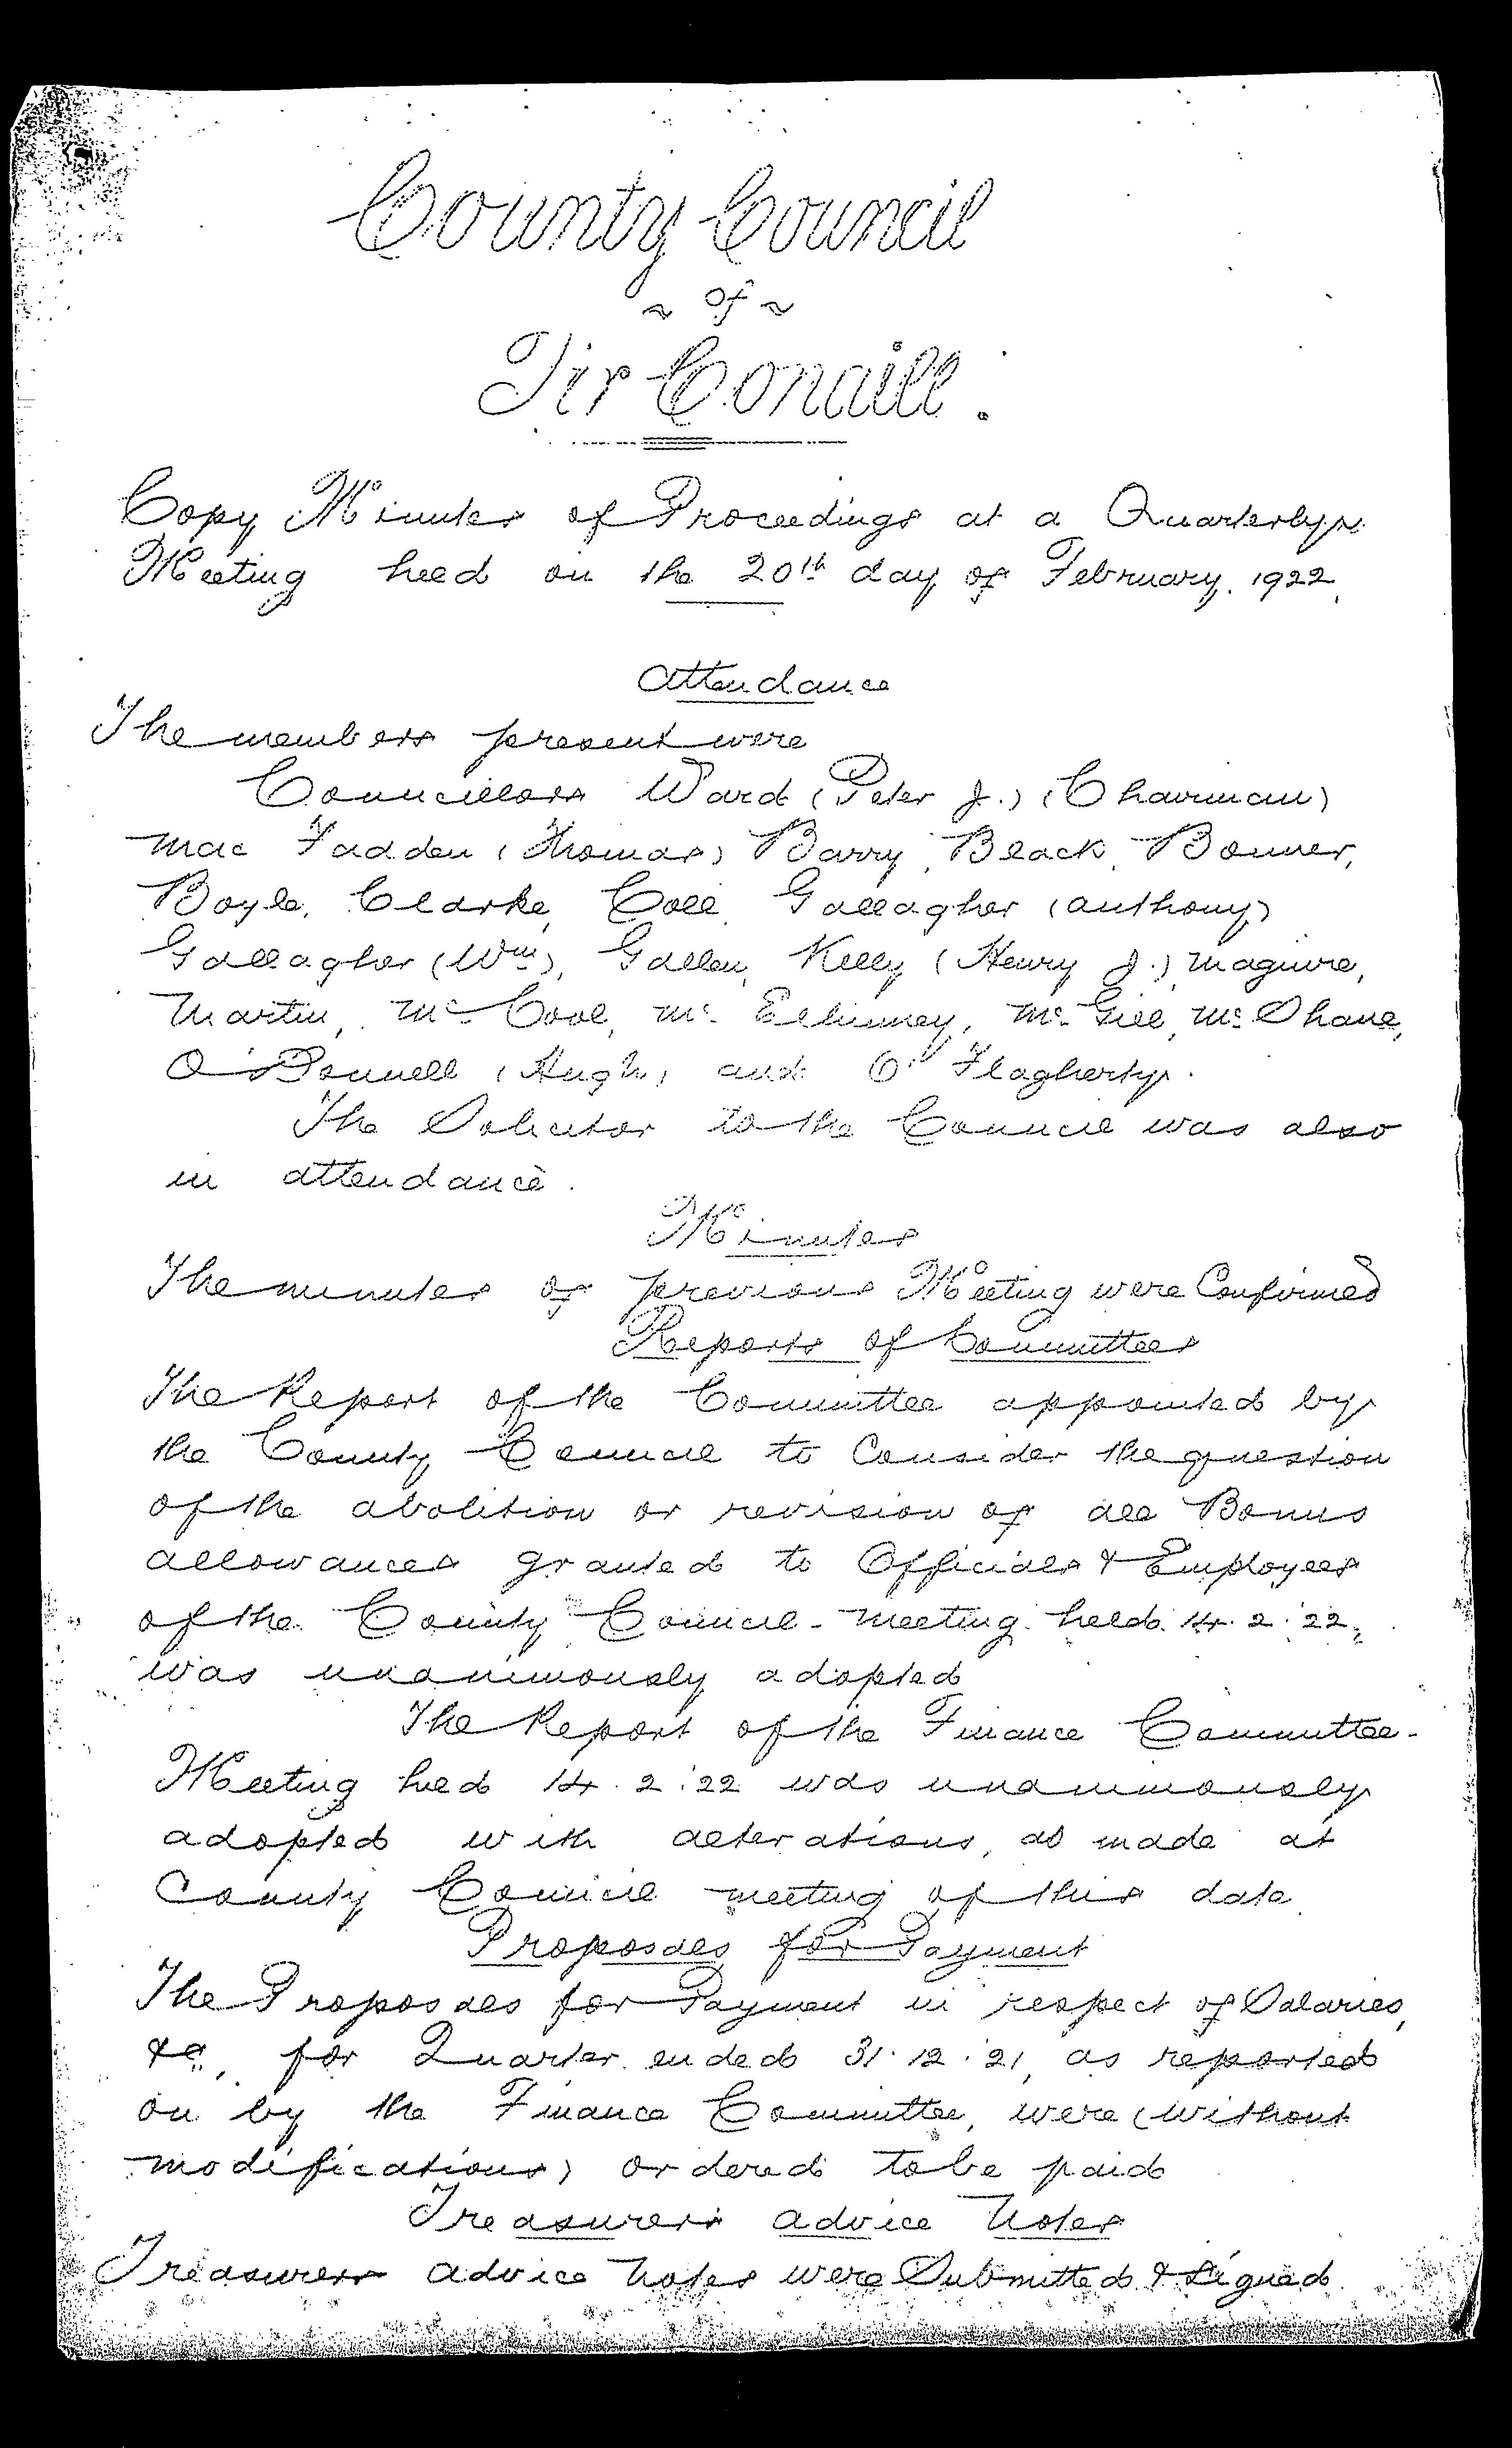 County Council
~ of ~
Tir Conaill.
Copy Minutes of Proceedings at a Quarterly
Meeting held on the 20th day of February. 1922.
Attendance
The members present were
Councillors Ward (Peter J.) (Chairman)
Mac Fadden (Thomas) Barry, Black, Bonner,
Boyle, Clarke, Coll, Gallagher (Anthony)
Gallagher (Wm), Gallen, Kelly (Henry J.) Maguire,
Martin, Mc Cool, Mc Elhinney, Mc Gill, Mc Shane,
O'Donnell (Hugh) and O'Flagherty.
The Solicitor to the Council was also
in attendance.
Minutes
The minutes of previous Meeting were Confirmed
Reports of Committees
The Report of the Committee appointed by
the County Council to Consider the question
of the abolition or revision of all Bonus
allowances granted to Officials & Employees
of the County Council - meeting held 14.2.22,
was unanimously adopted
The Report of the Finance Committee -
Meeting held 14.2.22 was unanimously
adopted with alterations, as made at
County Council meeting of this date.
Proposals for Payment
The Proposals for Payment in respect of Salaries,
&c., for Quarter ended 31.12.21, as reported
on by the Finance Committee, were (without
modifications) ordered to be paid
Treasurers advice Notes
Treasurers advice Notes were Submitted & Signed.